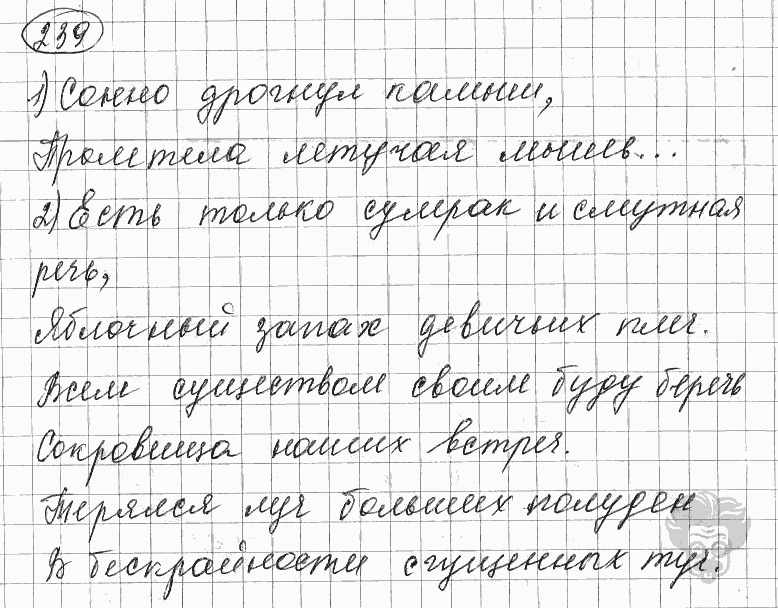 239
1) Сонно дрогнул камыш,
Пролетела летучая мышь...
2) Есть только сумрак и смутная
речь,
Яблочный запах девичьих плеч.
Всем существом своим буду беречь
Сокровища наших встреч.
Терялся луч больших полуден
В бескрайности сгущенных туч.